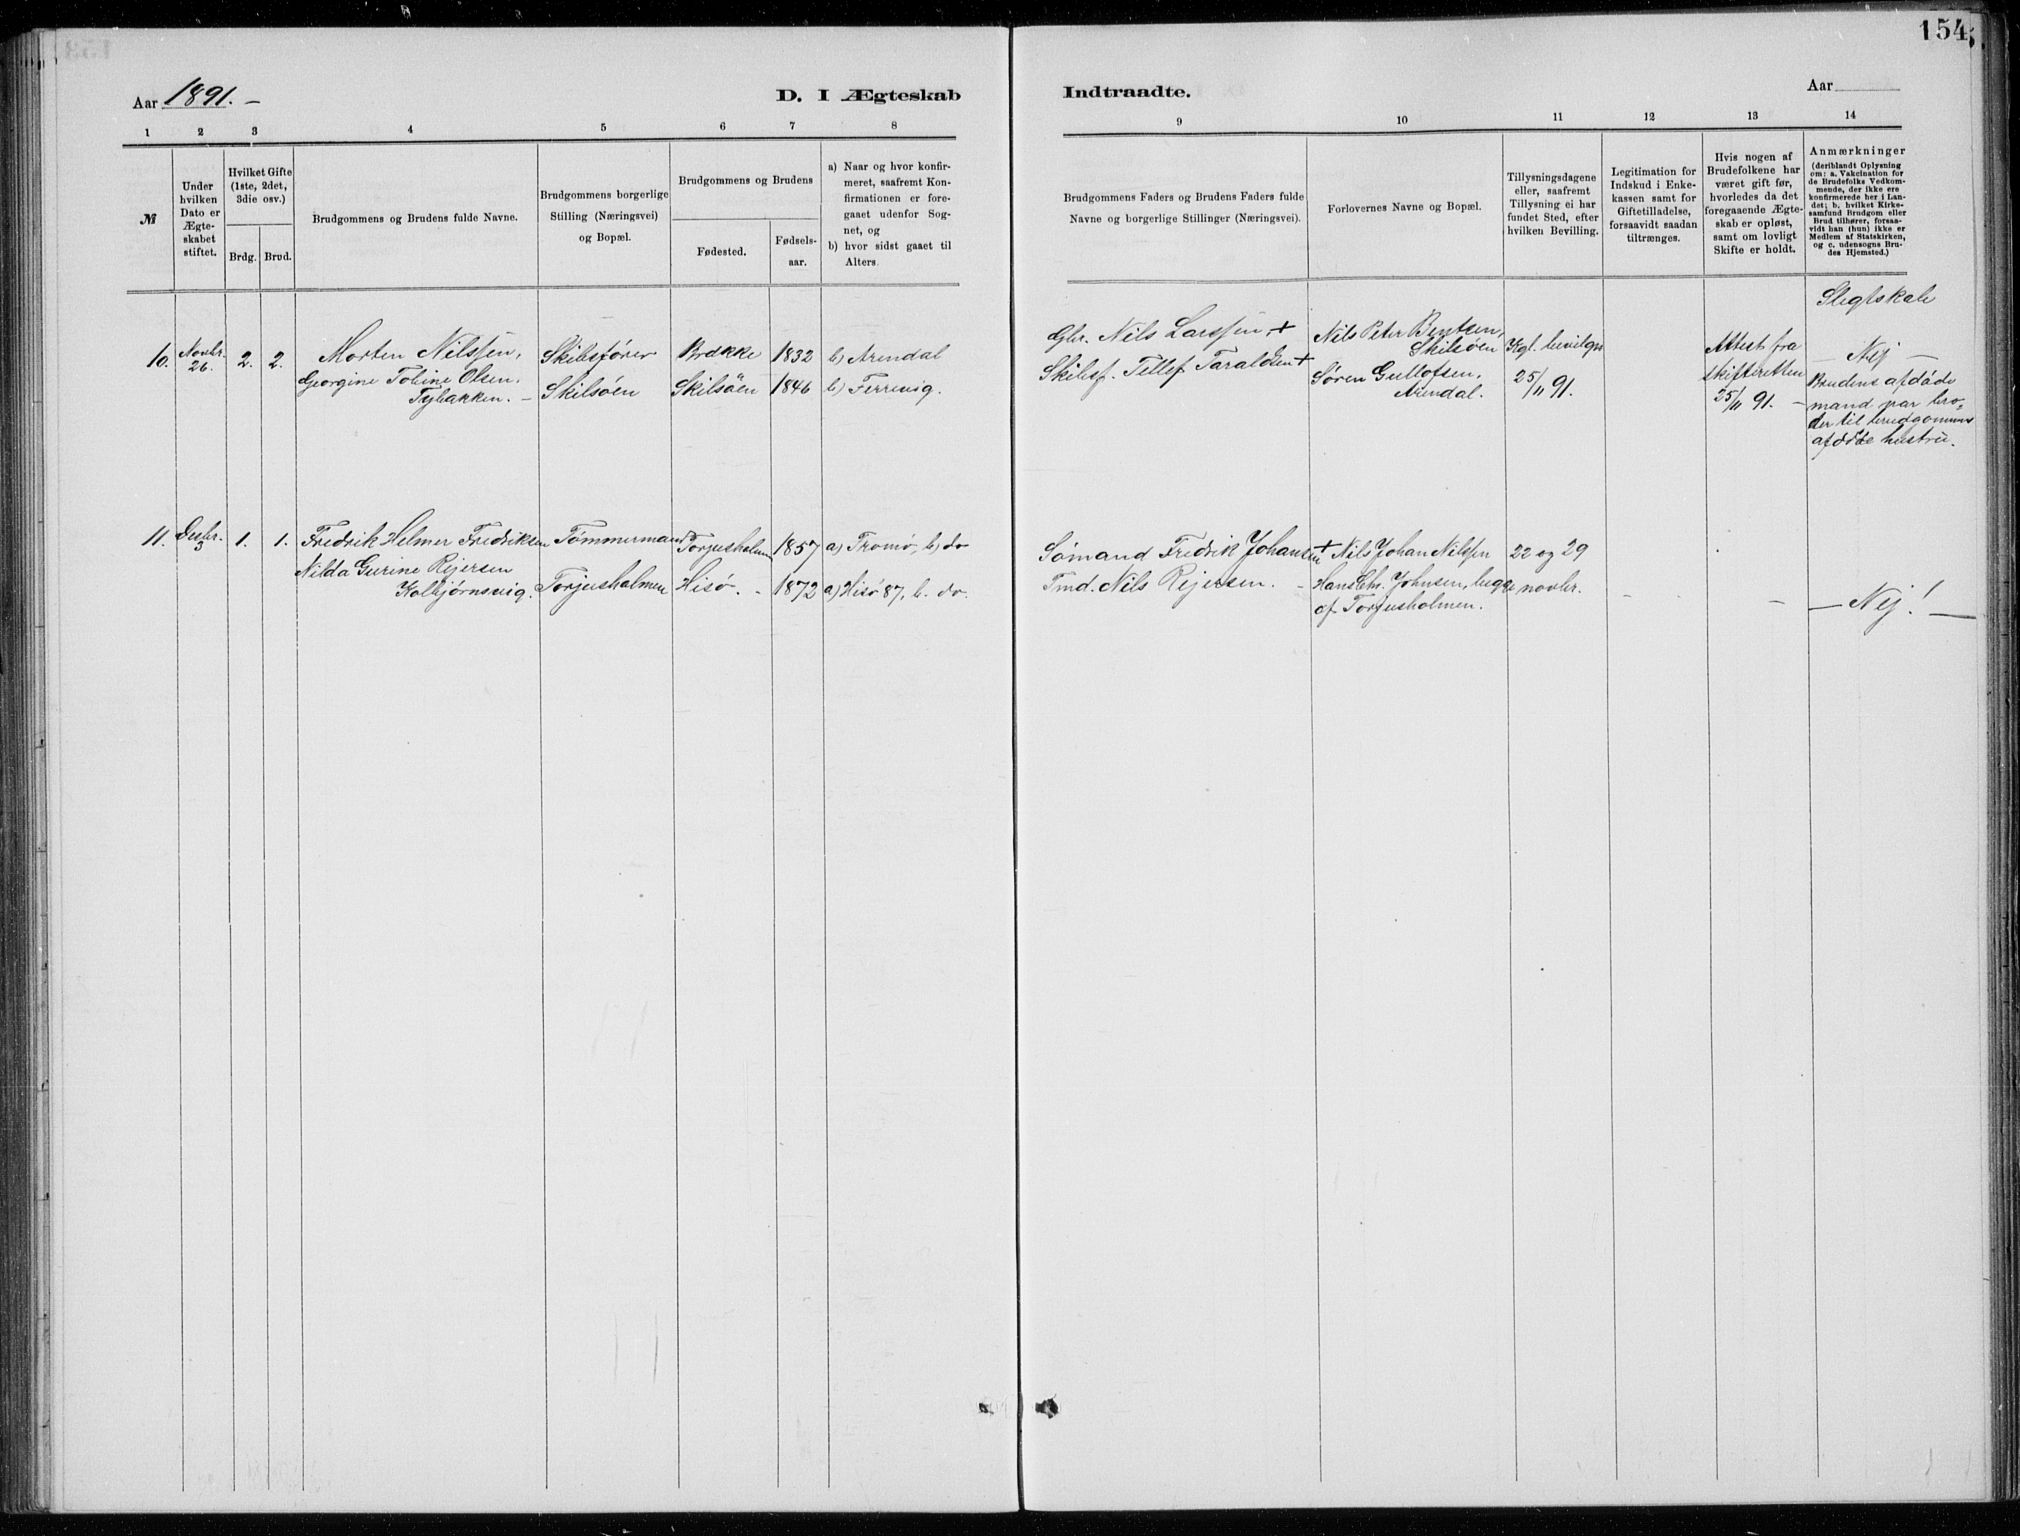 154
Aar 1891. –
D. I Ægteskab
Indtraadte.
Aar
1 2 3 4 5 6 7 8
9 10 11 12 13 14
№
Under
hvilken
Dato er
Ægte-
skabet
stiftet.
Hvilket Gifte
(1ste, 2det,
3die osv.)
Brdg. Brud.
Brudgommens og Brudens fulde Navne.
Brudgommens borgerlige
Stilling (Næringsvei)
og Bopæl.
Brudgommens og Brudens
Fødested.
Fødsels-
aar.
a) Naar og hvor konfir-
meret, saafremt Kon-
firmationen er fore-
gaaet udenfor Sog-
net, og
b) hvor sidst gaaet til
Alters.
Brudgommens Faders og Brudens Faders fulde
Navne og borgerlige Stillinger (Næringsvei).
Forlovernes Navne og Bopæl.
Tillysningsdagene
eller, saafremt
Tillysning ei har
fundet Sted, efter
hvilken Bevilling.
Legitimation for
Indskud i Enke-
kassen samt for
Giftetilladelse,
forsaavidt saadan
tiltrænges.
Hvis nogen af
Brudefolkene har
været gift før,
hvorledes da det
foregaaende Ægte-
skab er opløst,
samt om lovligt
Skifte er holdt.
Anmærkninger
(deriblandt Oplysning
om: a. Vakcination for
de Brudefolks Vedkom-
mende, der ikke ere
konfirmerede her i Lan-
det; b. hvilket Kirke-
samfund Brudgom eller
Brud tilhører, forsaa-
vidt han (hun) ikke er
Medlem af Statskirken,
og c. udensogns Bru-
des Hjemsted.)
10. Novbr.
26.
2. 2.
Morten Nilssen,
Georgine Tobine Olsen,
Tybakken. –
Skibsfører
Skilsöen
Brække 1832 b) Arendal
Skilsöen 1846 b) Færvig.
Gbr. Nils Larssen, +
Skibsf. Tellef Taraldsen +
Nils Peter Bentsen,
Skilsöen
Søren Gullofsen,
Arendal.
Kgl. bevilgn
25/11 91.
Attest fra
skifteretten
25/11 91. –
Slegtskab
– Nej –
Brudens afdöde
mand var bro-
der til brudgommens
afdöde hustru.
11. Decbr.
3
1. 1.
Fredrik Helmer Fredriksen
Nilda Gurine Rejersen
Kolbjørnsvig.
Tømmermand
Torjusholmen
Torjusholmen 1857 a) Tromø, b) do
Hisø. – 1872 a) Hisø 87, b. do.
Sømand Fredrik Johansen +
Tmd. Nils Rejersen. –
Nils Johan Nilssen
Hans Chr. Johnsen, begge
af Torjusholmen.
22 og 29
novbr.
–
–
– Nej! –